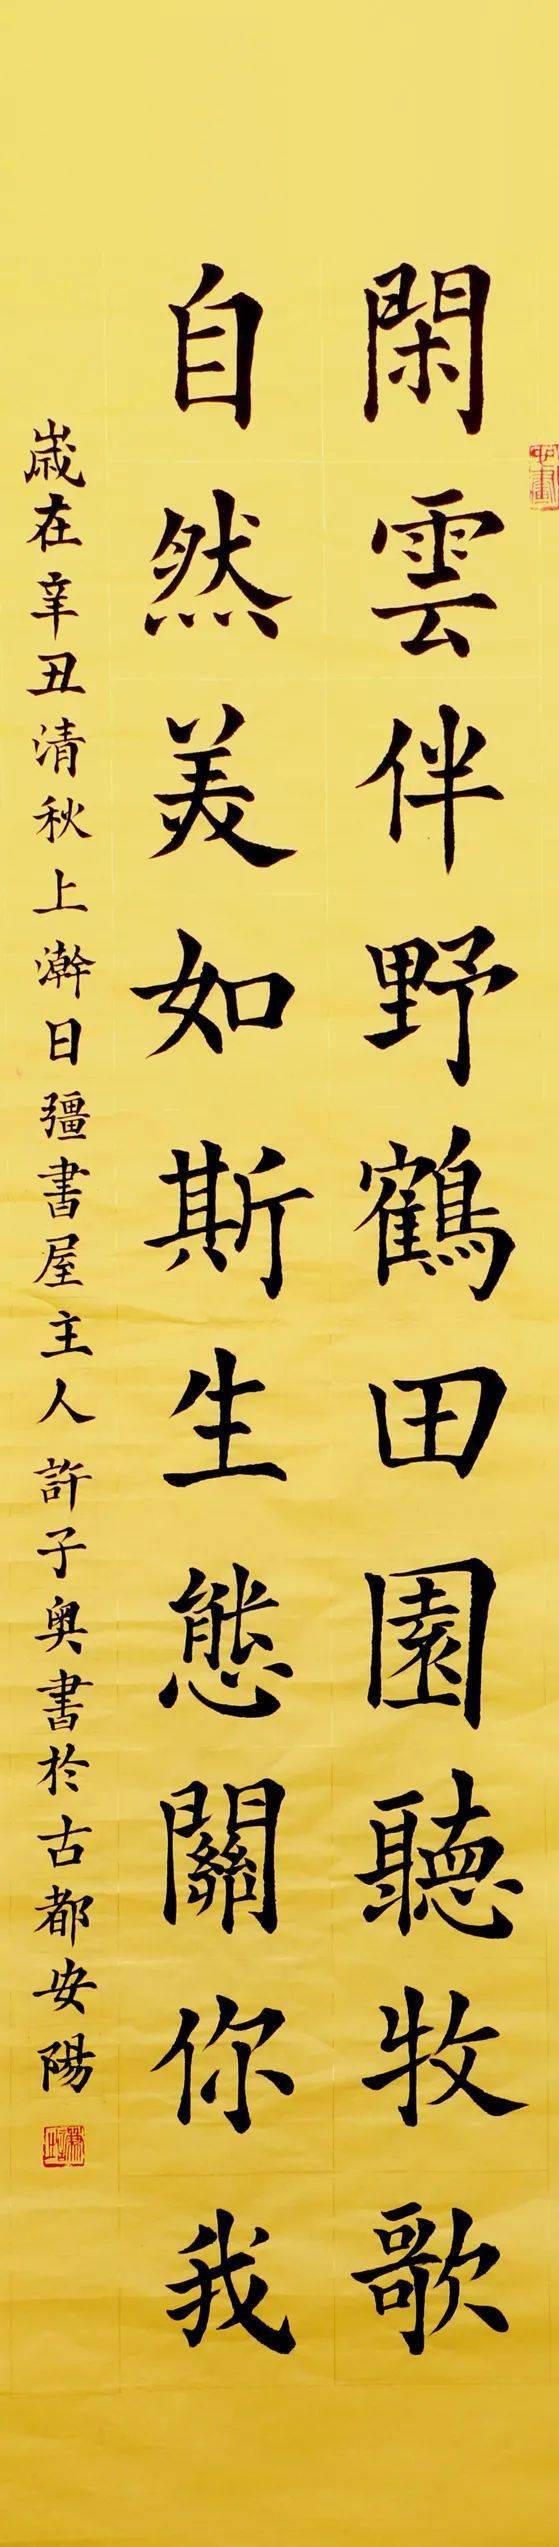 閑雲伴野鶴田園聽牧歌
自然美如斯生態關你我
歲在辛丑清秋上澣日彊書屋主人許子奥書於古都安陽